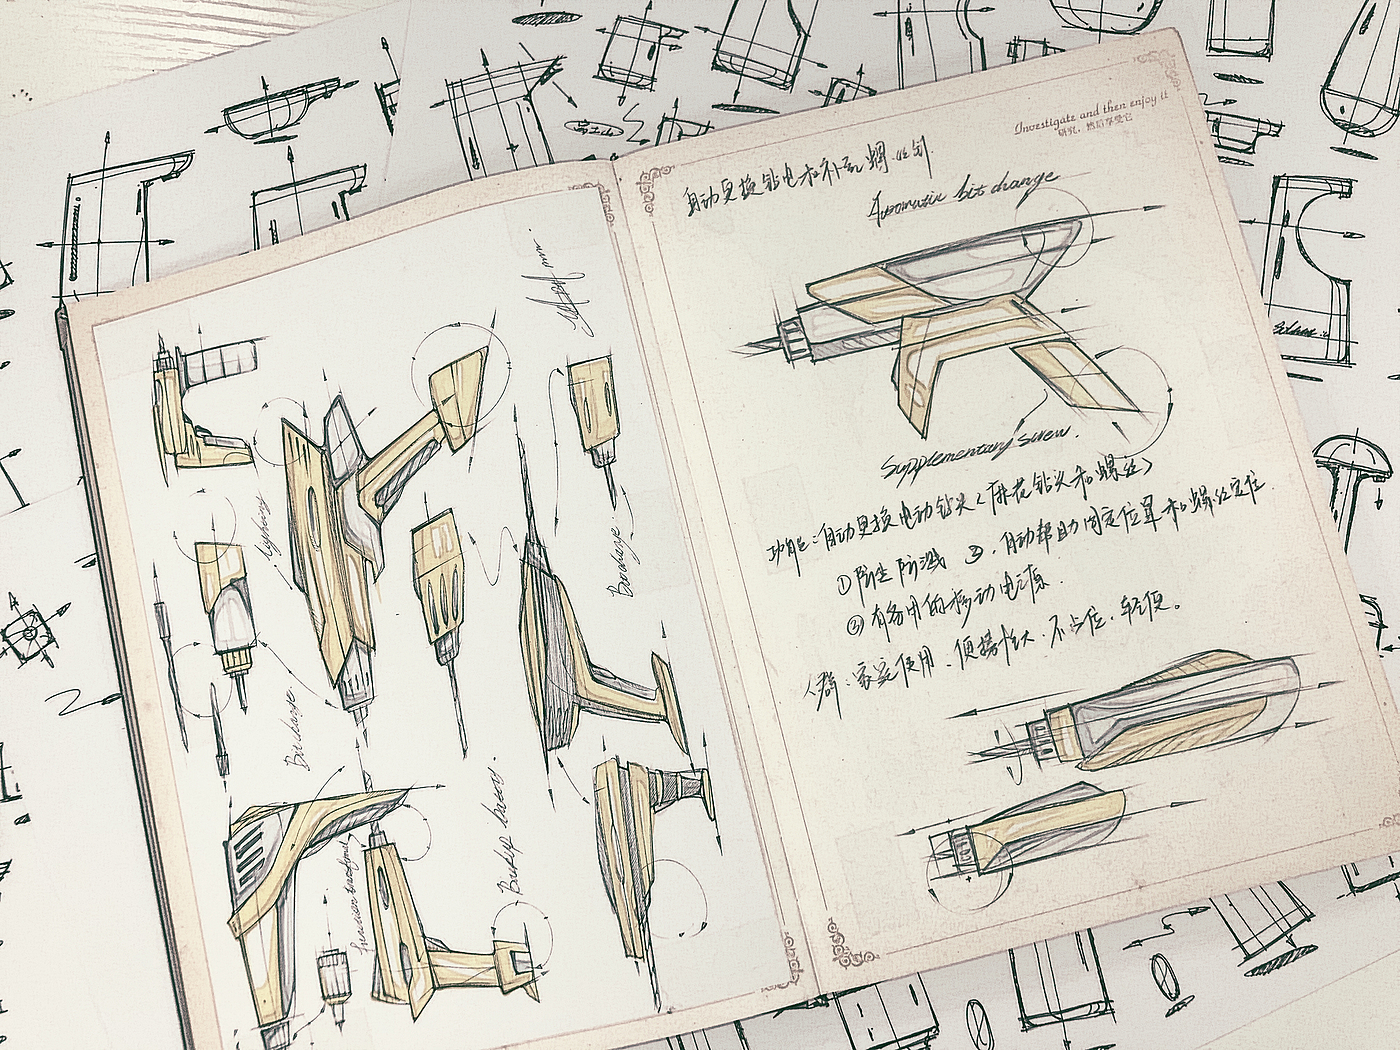 Investigate and then enjoy it
研究，然后享受它
自动更换钻电和补充螺丝钉
Automatic bit change
Supplementary screw.
功能：自动更换电动钻头（麻花钻头和螺丝）
①防尘防溅 ②.自动帮助固定位置和螺丝定位
③有备用的移动电源.
人群：家庭使用.便携性大.不占位.轻便。
Bit change
Bit change
Backup battery.